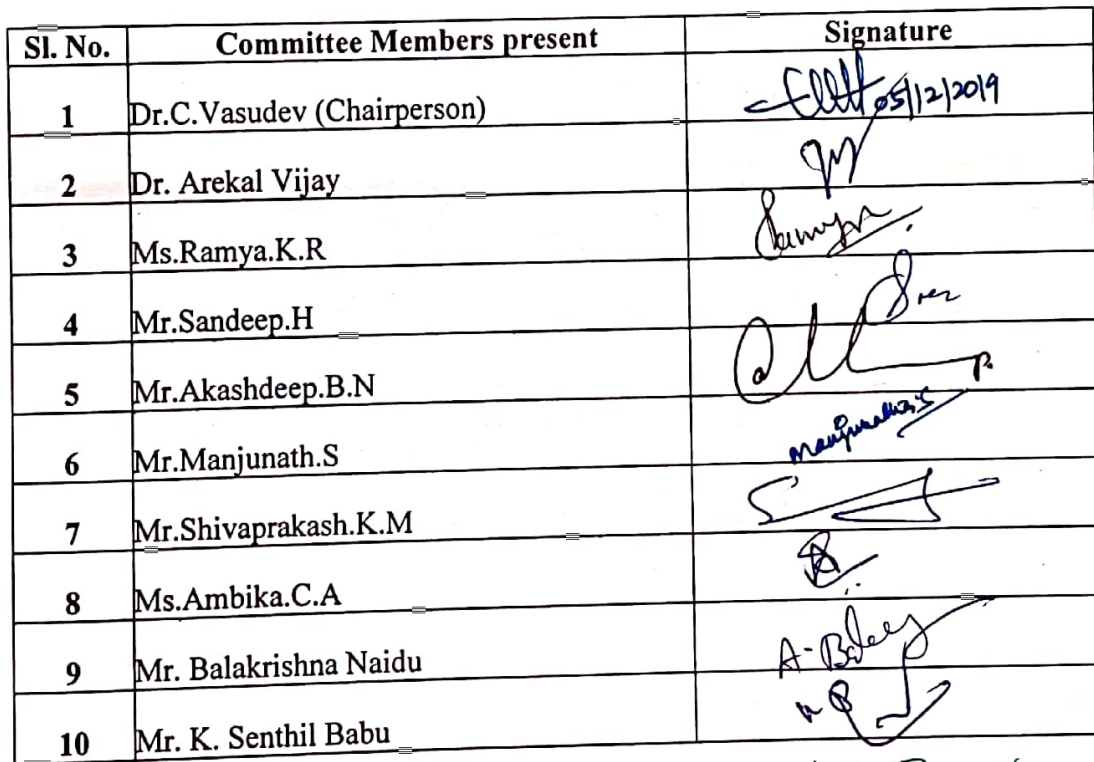 Sl. No. Committee Members present Signature
1 Dr.C.Vasudev (Chairperson) 05/12/2019
2 Dr. Arekal Vijay
3 Ms.Ramya.K.R
4 Mr.Sandeep.H
5 Mr.Akashdeep.B.N
6 Mr.Manjunath.S Manjunatha.S
7 Mr.Shivaprakash.K.M
8 Ms.Ambika.C.A
9 Mr. Balakrishna Naidu
10 Mr. K. Senthil Babu